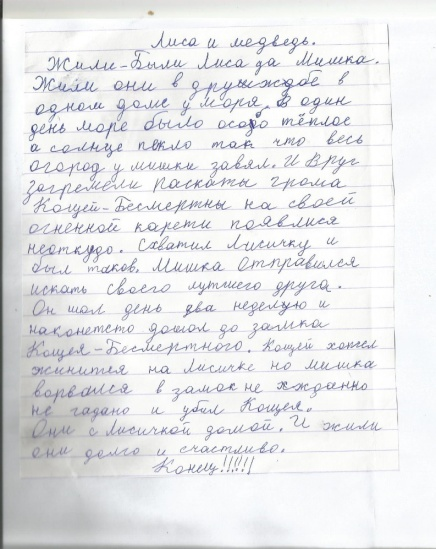 Лиса и медведь.
Жили-Были Лиса да Мишка.
Жили они в друшждбе в
одном доме у моря. В один
день море было особо тёплое
а солнце пекло так что весь
огород у мишки завял. И Вруг
загремели раскаты грома
Кощей-Бесмертны на своей
огненной карети появлися
неоткудо. Схватил Лисичку и
был таков. Мишка отправился
искать своего лутшего друга.
Он шол день два неделую и
наконетсто дошол до замка
Кощея-Бесмертного. Кощей хотел
жинится на Лисичке но мишка
ворвался в замок не жжданно
не гадано и убил Кощея.
Они с Лисичкой домой. И жили
они долго и счастливо.
Конец!!!!!!